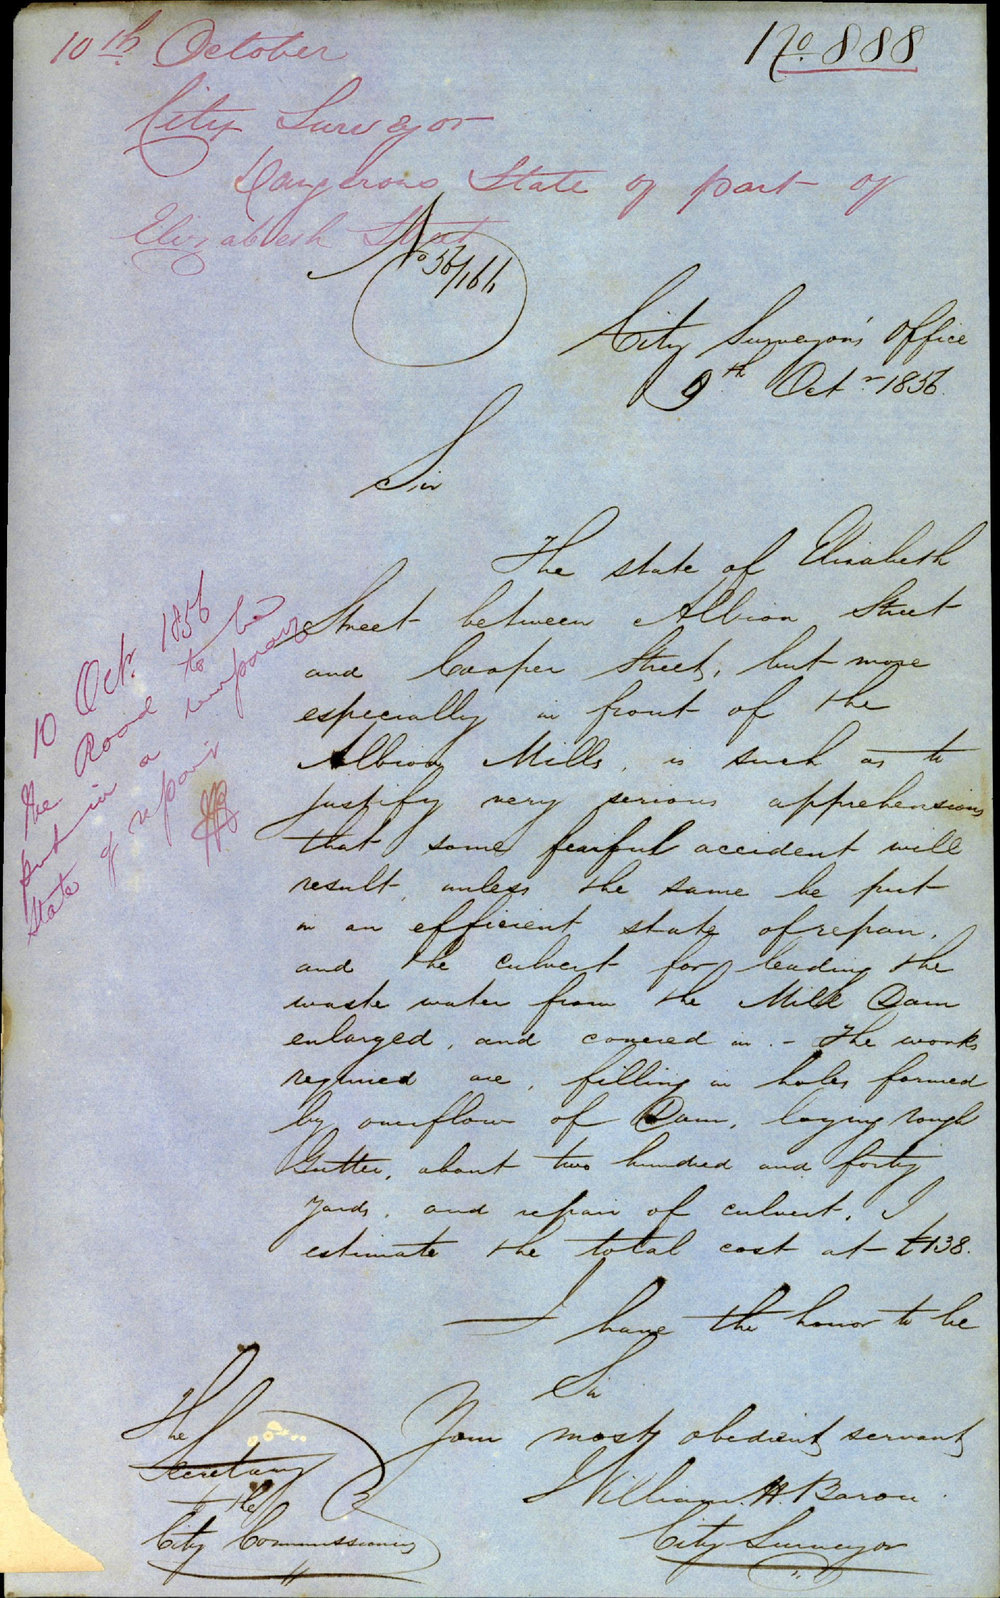 10th October
No. 888
City Surveyor
Dangerous State of part of
Elizabeth Street
No 56/166
City Surveyor's Office
9th Octr 1856.
Sir
The state of Elizabeth
Street between Albion Street
and Cooper Street, but more
especially in front of the
Albion Mills, is such as to
justify very serious apprehensions
that some fearful accident will
result, unless the same be put
in an efficient state of repair,
and the culvert for leading the
waste water from the Mill Dam
enlarged, and covered in. - The works
required are, filling in holes formed
by overflow of Dam, laying rough
Gutter, about two hundred and forty
yards, and repair of culvert, I
estimate the total cost at £138.
I have the honor to be
Sir
Your most obedient servant
William H. Baron.
City Surveyor
The
Secretary
to the
City Commissioners
10 Oct. 1856
The Road to be
put in a temporary
State of repair